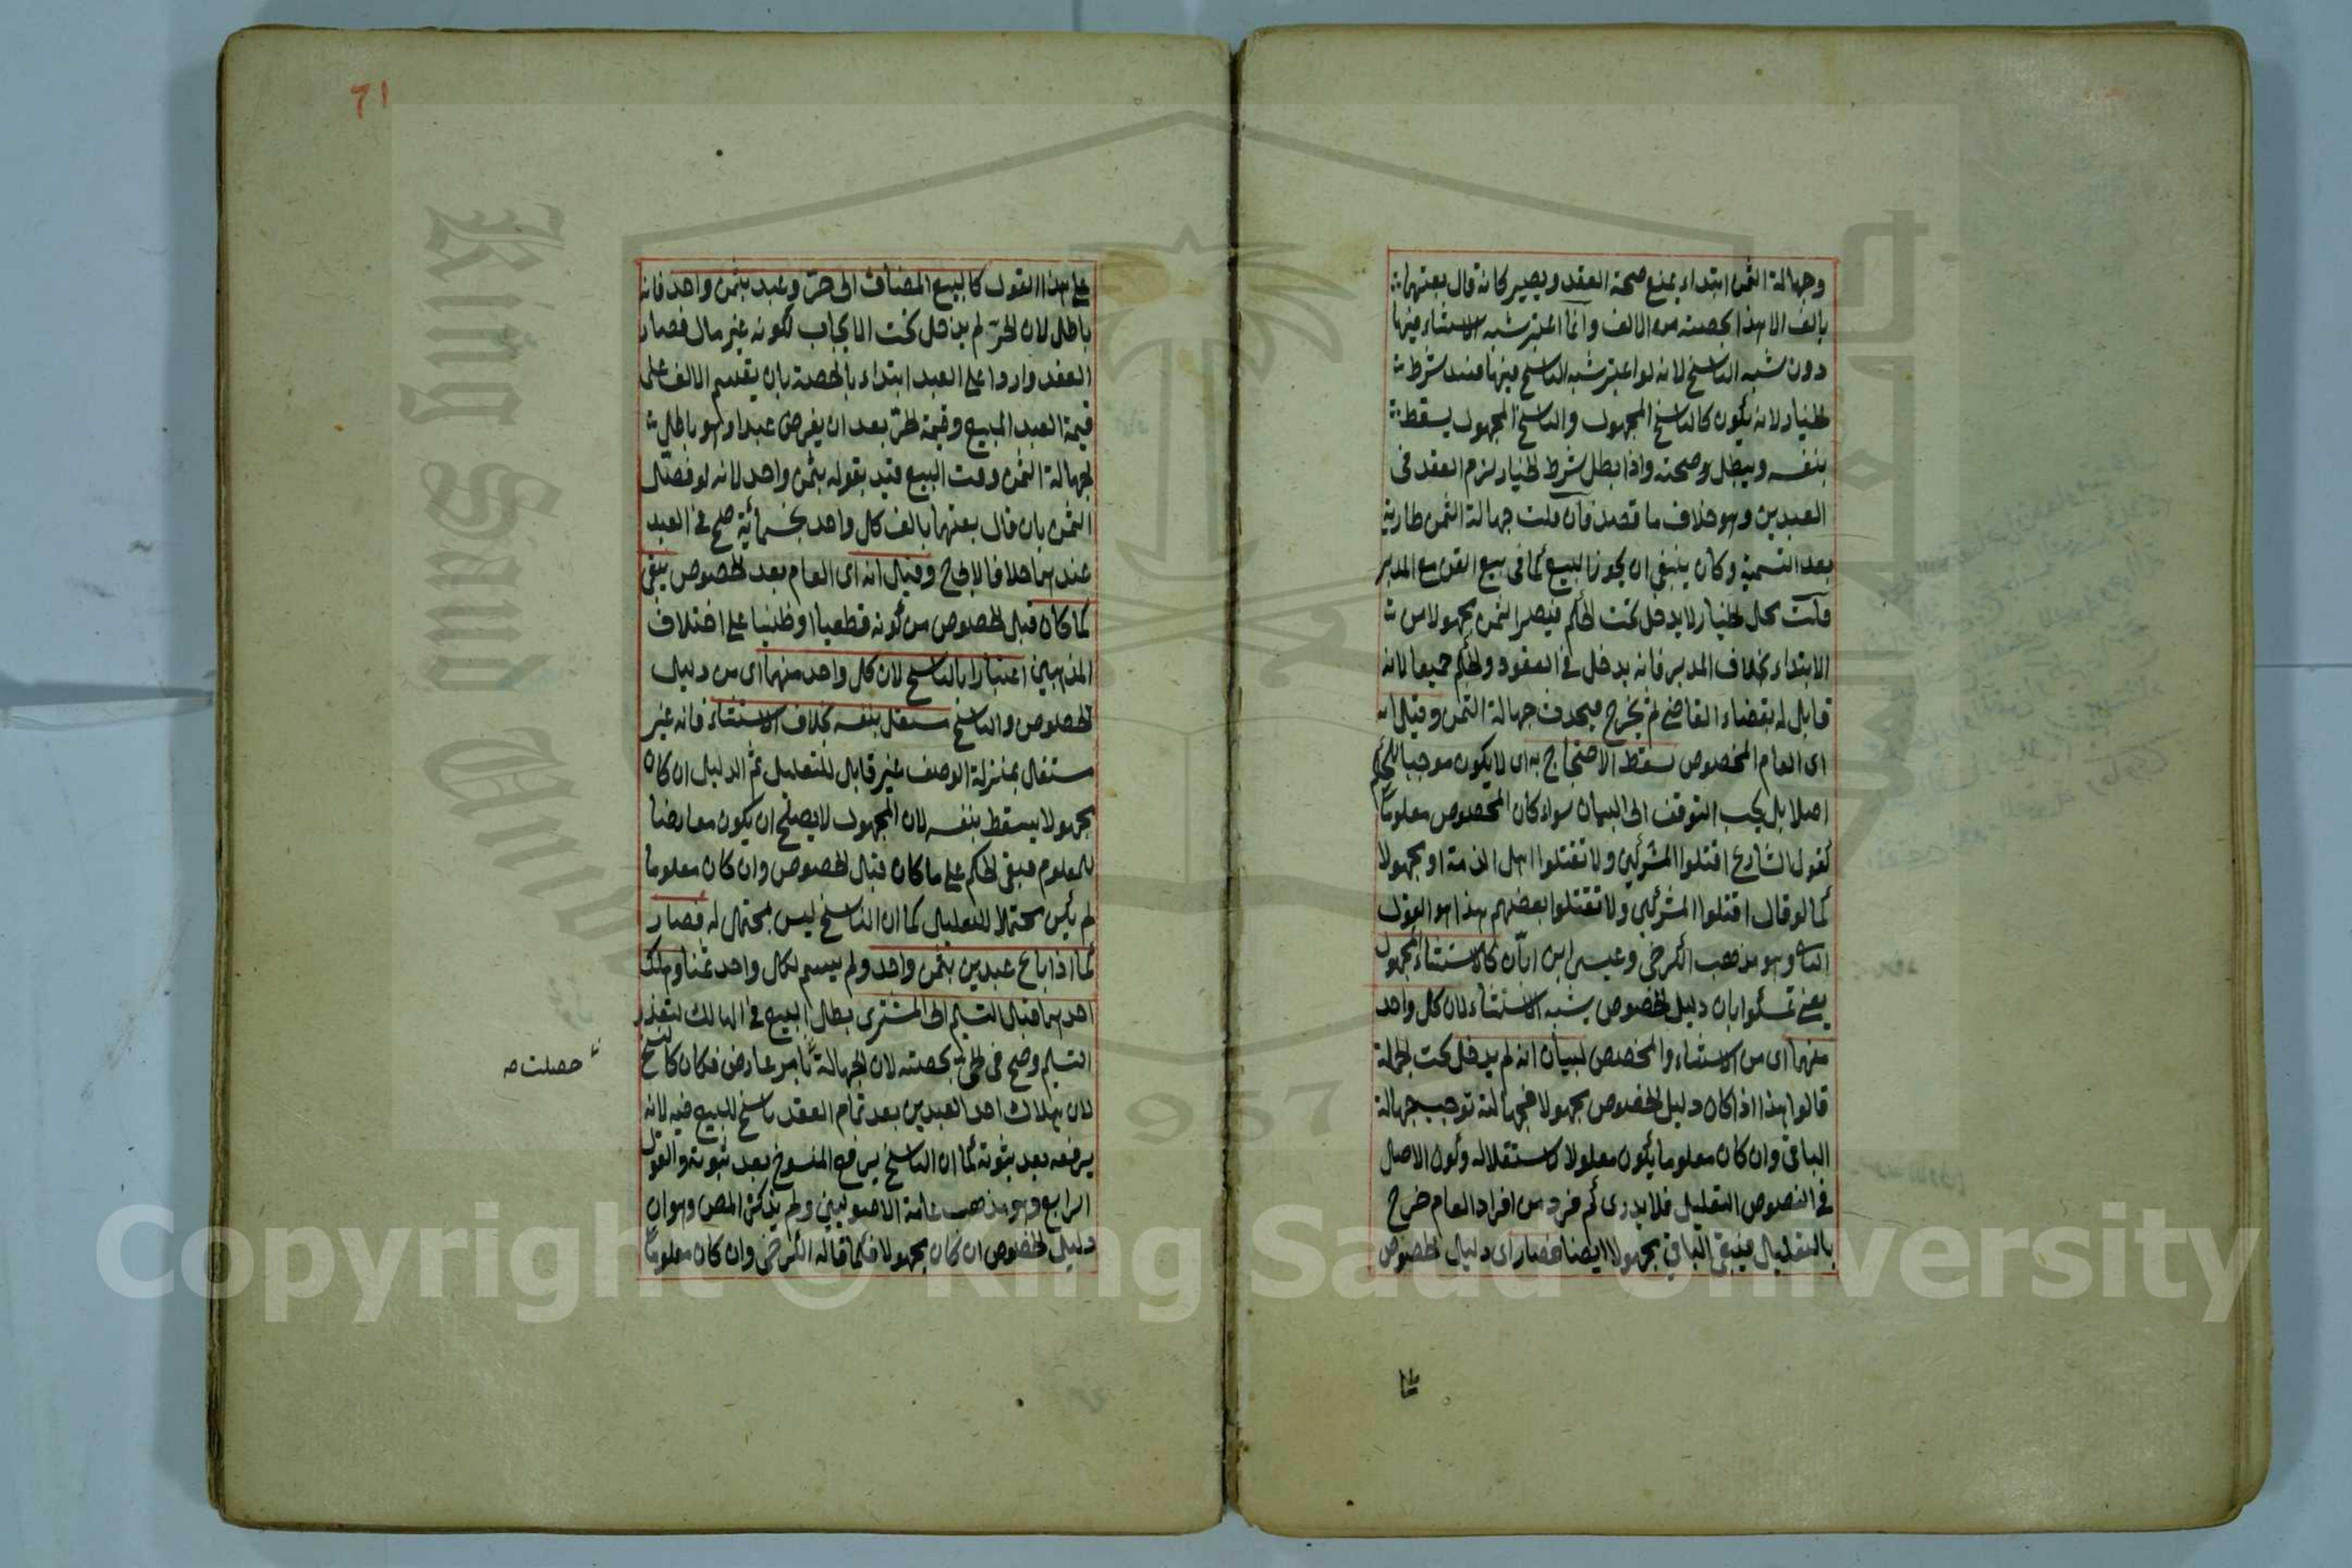 وجهالة الثمن ابتداء يمنع صحة العقد ويصير كانه قال بعتهما
بالف الا هذا بحصته من الالف وانما اعتبر شبه الاستثناء فيها
دون شبه الناسخ لانه لو اعتبر شبه الناسخ فيها فسد شرط
الخيار لانه يكون كالناسخ المجهول والناسخ المجهول يسقط
بنفسه ويبطل وصحته واذا بطل شرط الخيار لزم العقد فى
العبدين وهو خلاف ما قصد فان قلت جهالة الثمن طارية
بعد التسمية وكان ينبغى ان يجوز البيع كما فى بيع القن مع المدبر
قلت محل الخيار لا يدخل تحت الحكم فيصير الثمن مجهولا من
الابتداء بخلاف المدبر فانه يدخل فى العقود والحكم جميعا لانه
قابل له بقضاء القاضى ثم يخرج فيحدث جهالة الثمن وقيل انه
اى العام المخصوص يسقط الاحتجاج به اى لا يكون موجبا للحكم
اصلا بل يجب التوقف الى البيان سواء كان المخصوص معلوما
كقول الشارع اقتلوا المشركين ولا تقتلوا اهل الذمة او مجهولا
كما لو قال اقتلوا المشركين ولا تقتلوا بعضهم هذا هو القول
وهو مذهب الكرخى وعيسى ابن ابان كالاستثناء المجهول
يعنى تمسكوا بان دليل الخصوص يشبه الاستثناء لان كل واحد
منهما اى من الاستثناء والمخصص لبيان انه لم يدخل تحت الجملة
قالوا هذا اذا كان دليل الخصوص مجهولا فجهالته توجب جهالة
الباقى وان كان معلوما يكون معلولا لاستقلاله وكون الاصل
فى النصوص التعليل فلا يدرى كم فرد من افراد العام خرج
بالتعليل فيبقى الباقى مجهولا ايضا فصار اى دليل الخصوص
على هذا القول كالبيع المضاف الى حر وعبد بثمن واحد فانه
باطل لان الحر لم يدخل تحت الايجاب لكونه غير مال فصار
العقد واردا على العبد ابتداء بالحصة بان يقسم الالف على
قيمة العبد المبيع وقيمة الحر بعد ان يفرض عبدا وهو باطل
لجهالة الثمن وقت البيع قيد بقوله بثمن واحد لانه لو فصل
الثمن بان قال بعتهما بالف كل واحد بخمسمائة صح فى العبد
عندهما خلافا لابى ح وقيل انه اى العام بعد الخصوص يبقى
كما كان قبل الخصوص من كونه قطعيا او ظنيا على اختلاف
المذهبين اعتبارا بالناسخ لان كل واحد منهما اى من دليل
الخصوص والناسخ مستقل بنفسه بخلاف الاستثناء فانه غير
مستقل بمنزلة الوصف غير قابل للتعليل ثم الدليل ان كان
مجهولا يسقط بنفسه لان المجهول لا يصلح ان يكون معارضا
للمعلوم فبقى الحكم على ما كان قبل الخصوص وان كان معلوما
لم يكن محتملا للتعليل كما ان الناسخ ليس محتمل له فصار
كما اذا باع عبدين بثمن واحد ولم يسم لكل واحد ثمنا وهلك
احدهما قبل التسليم الى المشترى بطل البيع فى الهالك لتعذر
التسليم وصح فى الحى بحصته لان الجهالة بامر عارض فكان كالنسخ
حصلت صه
لان هلاك احد العبدين بعد تمام العقد ناسخ للبيع فيه لانه
يرفعه بعد ثبوته كما ان الناسخ يرفع المنسوخ بعد ثبوته والقول
الرابع وهو مذهب عامة الاصوليين ولم يذكره المص وهو ان
دليل الخصوص ان كان مجهولا فكما قاله الكرخى وان كان معلوما
71
Copyright © King Saud University
King Saud University
1957